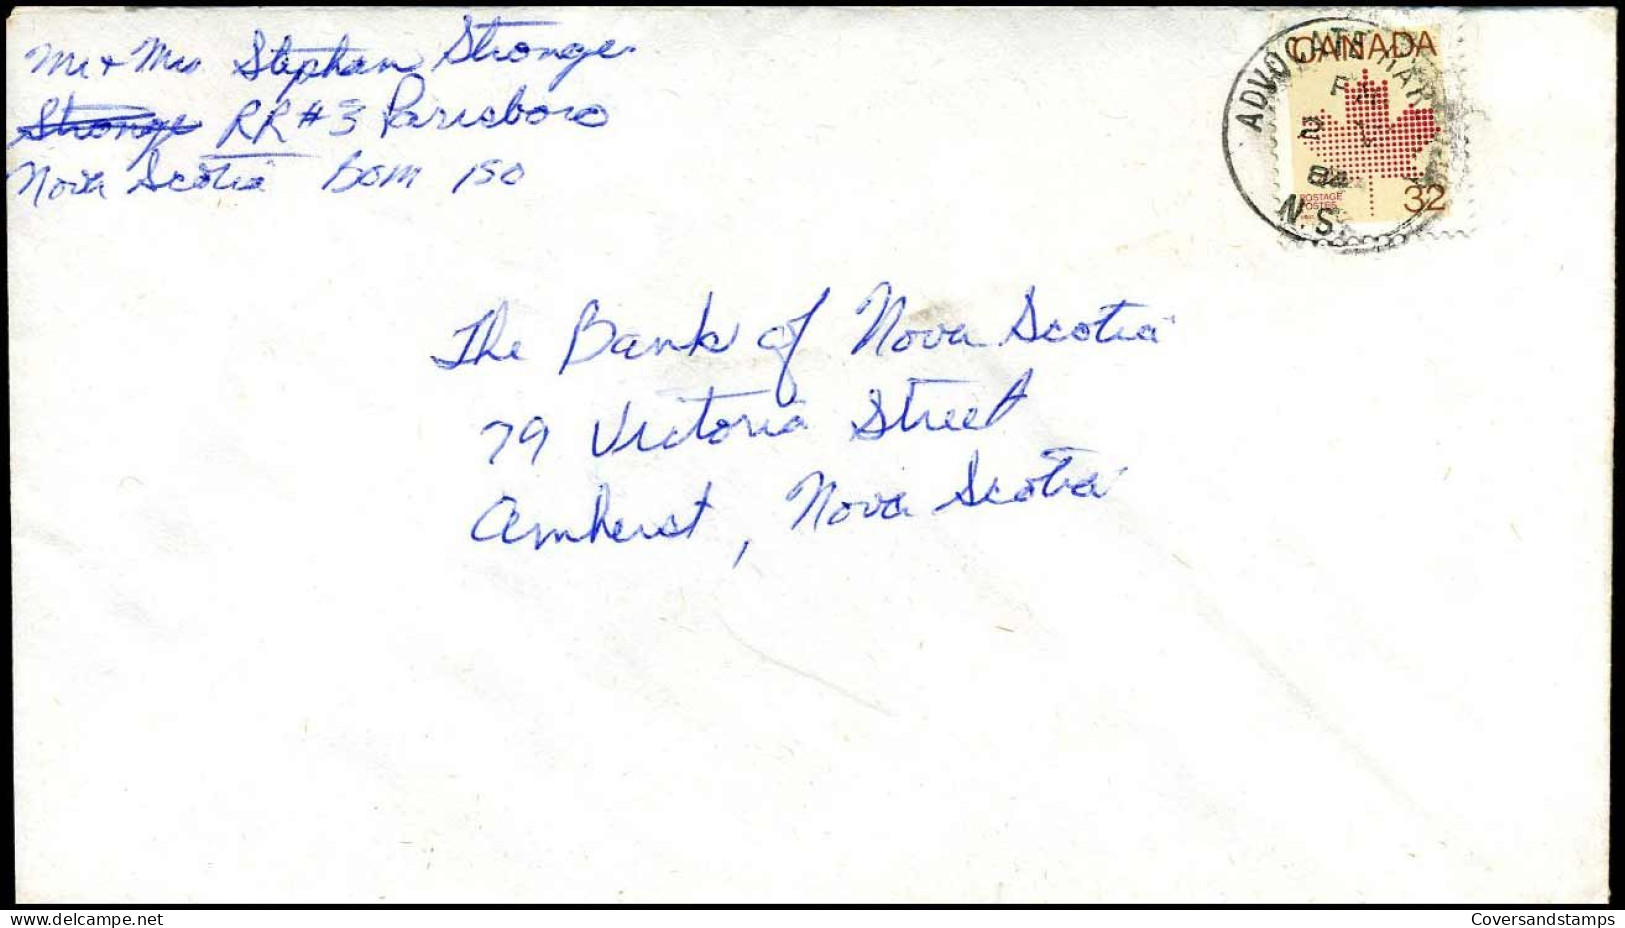 Mr + Mrs Stephan Stronge
Stronge RR#3 Parrsboro
Nova Scotia BOM 1S0
CANADA
ADVOCATE HAR
PM
2
84
N.S.
POSTAGE
POSTES
32
The Bank of Nova Scotia
79 Victoria Street
Amherst, Nova Scotia
delcampe.net
Coversandstamps